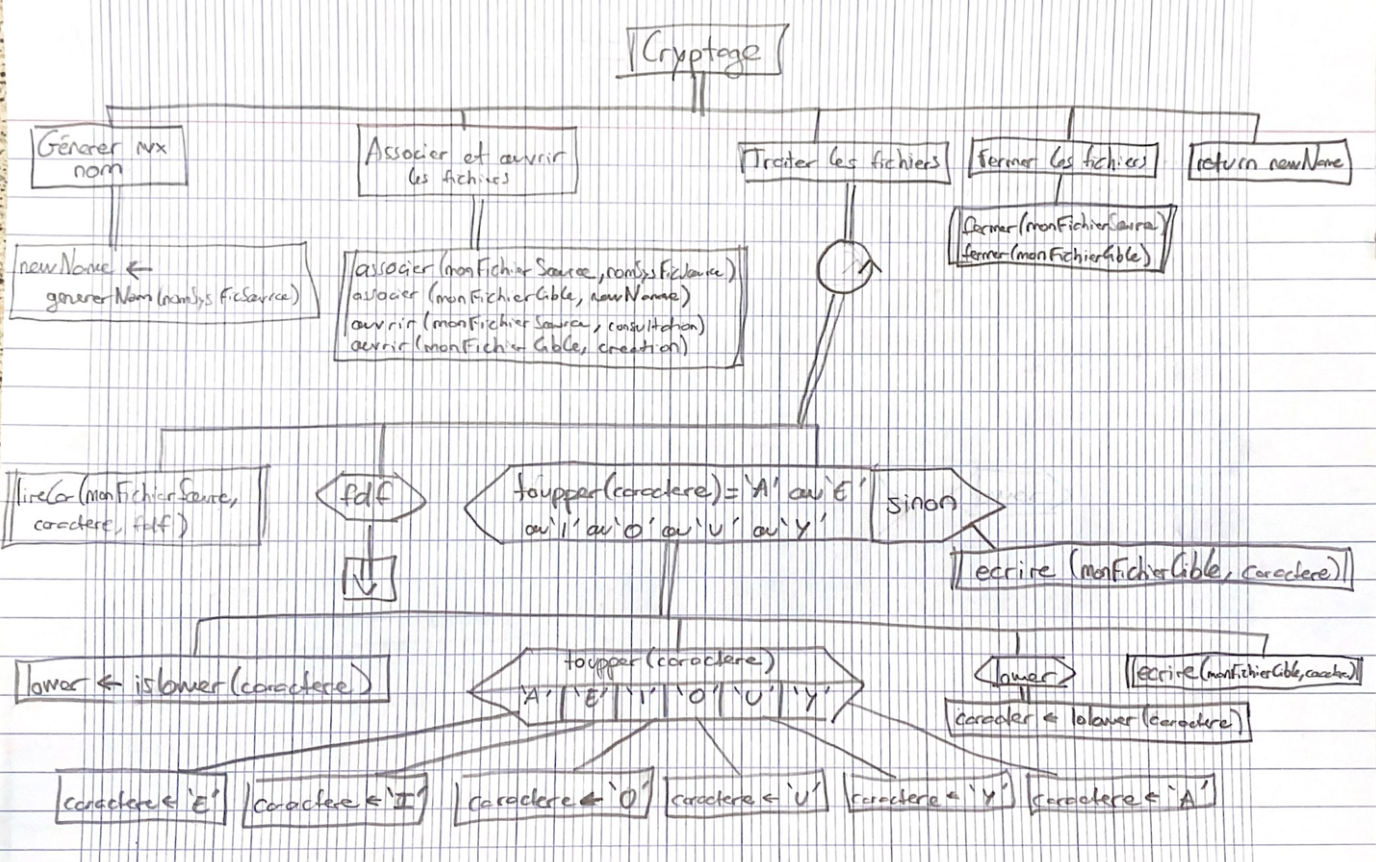 Cryptage
Générer nx
nom
Associer et ouvrir
les fichiers
Traiter les fichiers
fermer les fichiers
return newName
newName ←
genererNom(nomSysFicSource)
associer(monFichierSource, nomSysFicSource)
associer(monFichierCible, newName)
ouvrir(monFichierSource, consultation)
ouvrir(monFichierCible, creation)
fermer(monFichierSource)
fermer(monFichierCible)
lireCar(monFichierSource,
caractere, fdf)
fdf
toupper(caractere)='A' ou 'E'
ou 'I' ou 'O' ou 'U' ou 'Y'
sinon
ecrire (monFichierCible, caractere)
lower ← islower(caractere)
toupper(caractere)
'A' 'E' 'I' 'O' 'U' 'Y'
lower
ecrire(monFichierCible, caractere)
caracter ← tolower(caractere)
caractere ← 'E'
caractere ← 'I'
caractere ← 'O'
caractere ← 'U'
caractere ← 'Y'
caractere ← 'A'